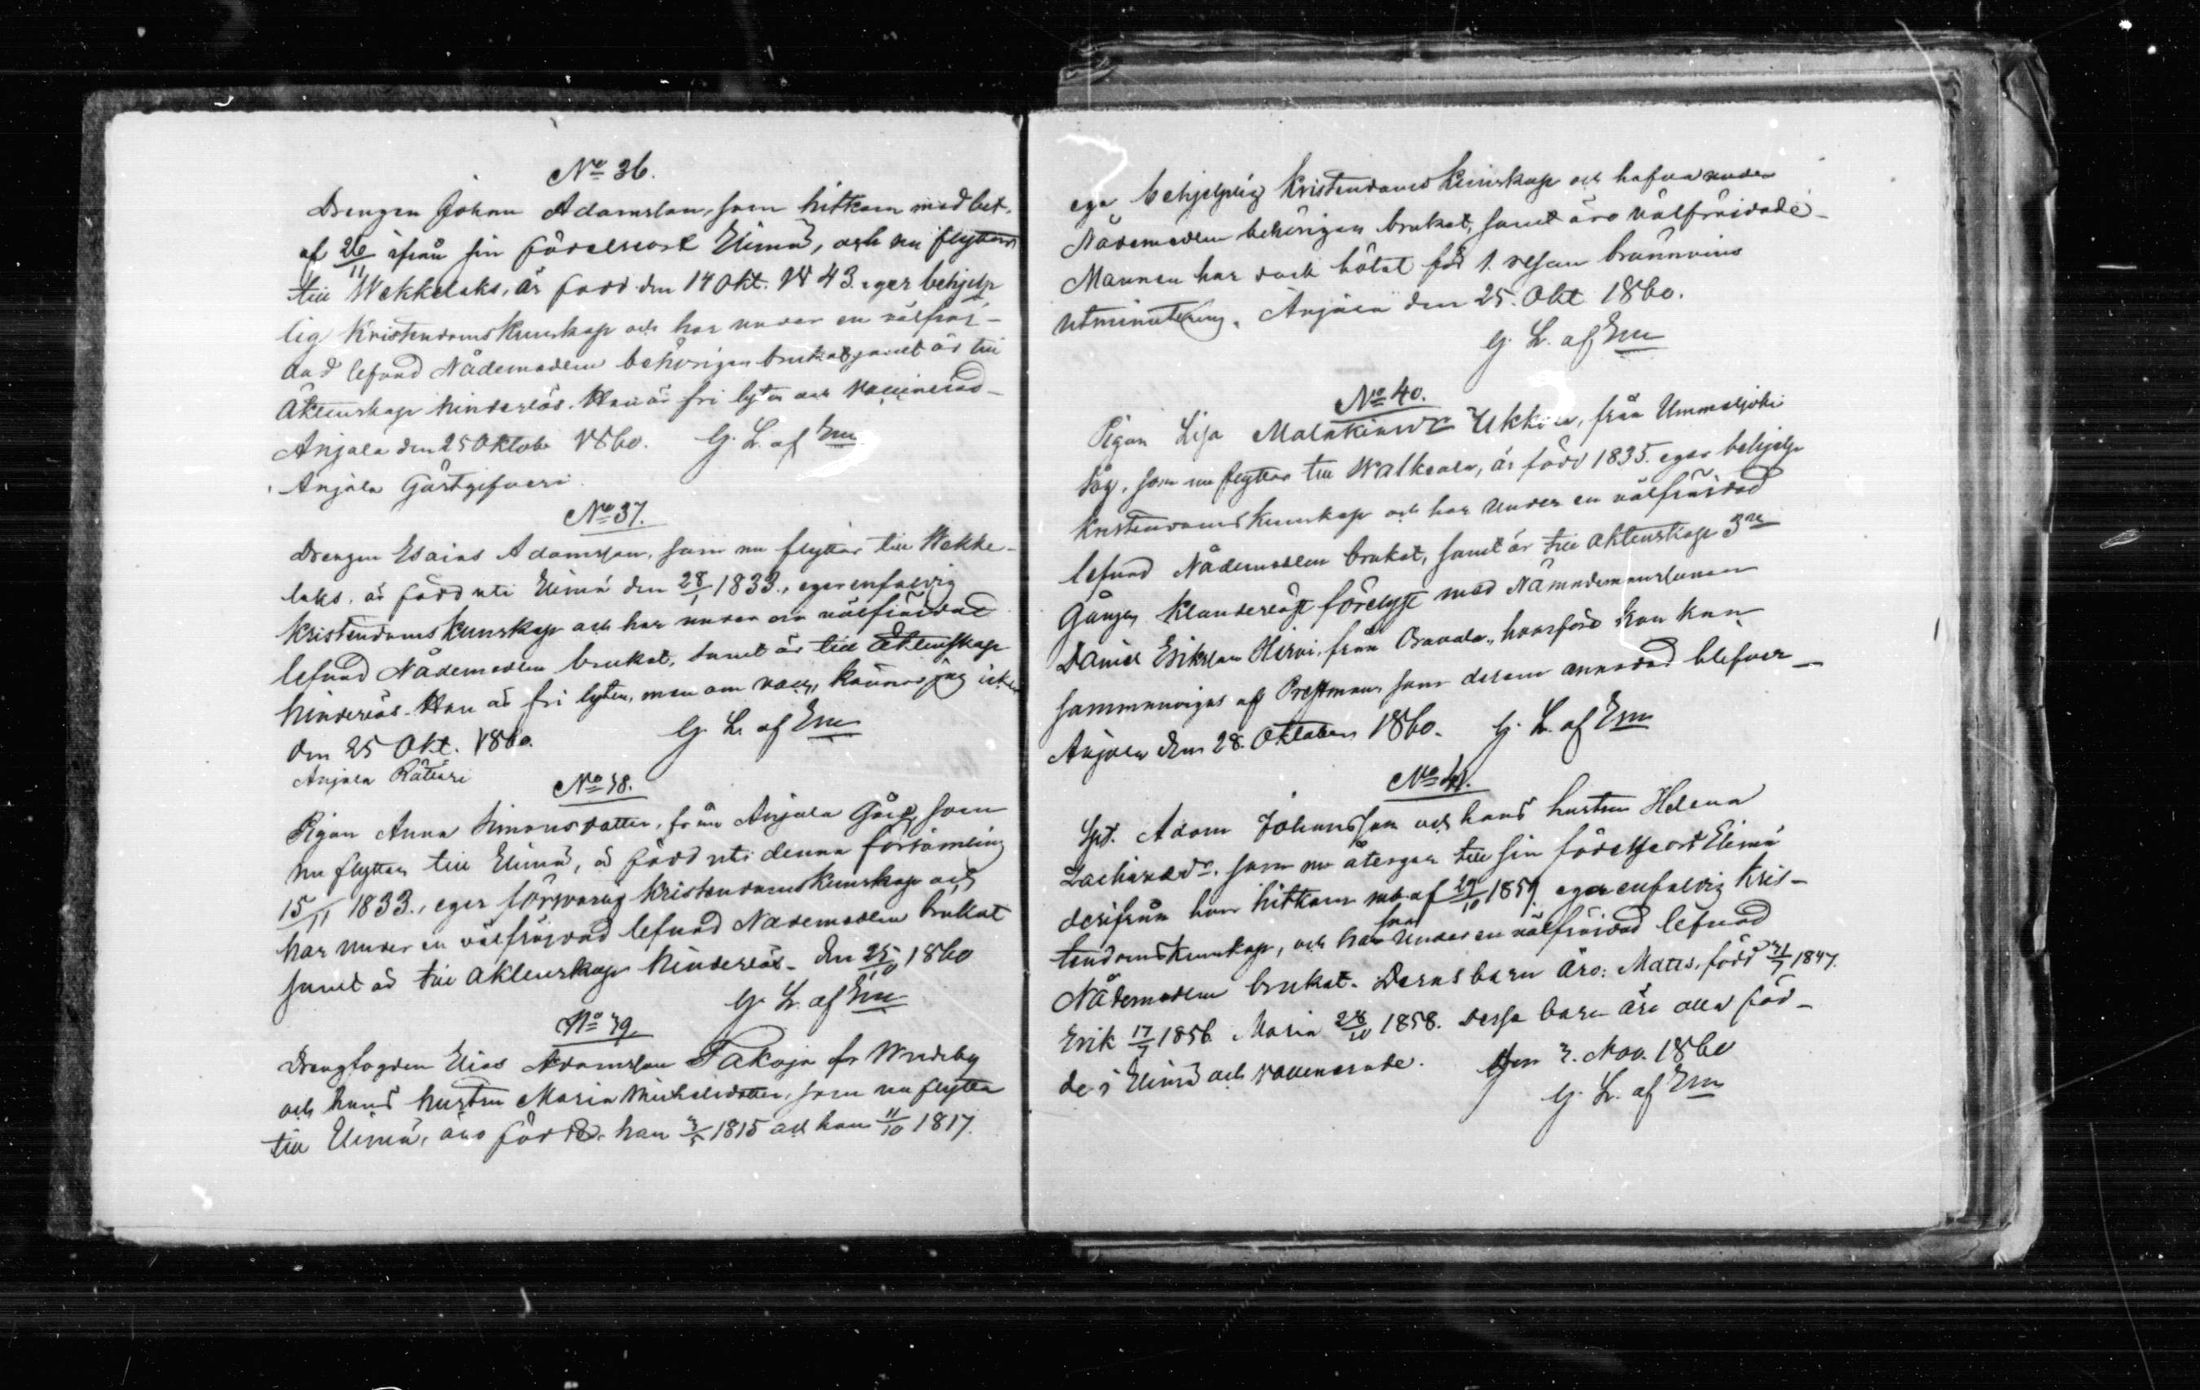 No 36.
Drengen Johan Adamsson, som hitkom med bet.
af 26/11 ifrån sin födelseort Elimä, och nu flyttar
till Wekkelaks, är född den 14 Okt. 1843. eger behjelp
lig Kristendomskunskap och har under en välfräj-
dad lefnad Nådemedlen behörigen brukat samt är till
Äktenskap hinderlös. Han är fri lyten och vaccinerad-
Anjala den 25 Oktobr 1860. G. L. af Em
Anjala Gästgifveri
No 37.
Drengen Esaias Adamsson, som nu flyttar till Wekke-
laks, är född uti Elimä den 28/1 1833., eger enfaldig
Kristendoms Kunskap och har under en välfräjdad
lefnad Nådemedlen brukat, samt är till Äktenskap
hinderlös. Han är fri lyten, men om vacc, känner jag icke
den 25 Okt. 1860. G. L. af Em
Anjala Råtteri
No 38.
Pigan Anna Simonsdotter, från Anjala Gård, som
nu flyttar till Elimä, är född uti denna församling
15/11 1833., eger försvarlig Kristendomskunskap och
har under en välfräjdad lefnad Nådemedlen brukat
samt är till Äktenskap hinderlös- den 25/10 1860
G. L. af Em
No 39.
Drengfogden Elias Adamsson Takoja fr Wredeby
och hans hustru Maria Michelsdotter, som nu flytta
till Elimä, äro födde, han 3/5 1815 och hon 11/10 1817.
ega behjelplig Kristendoms Kunskap och hafva under
Nådemedlen behörigen brukat, samt äro välfräjdade-
Mannen har dock bötat för 1. resan brännvins
utminutering. Anjala den 25. Okt 1860.
G. L. af Em
No 40.
Pigan Lisa Malakiasdr Ukkola, från Ummeljoki
by, som nu flyttar till Walkeala, är född 1835. eger behjelp
Kristendoms Kunskap och har under en välfräjdad
lefnad Nådemedlen brukat, samt är till äktenskap 3ne
Gånger klanderlöst förelyst med Nämndemanssonen
Daniel Eriksson Hirvi, från Oravala, hvarföre hon kan
sammanvigas af Prestman, som derom anmodad blefver-
Anjala den 28. Oktober 1860. G. L. af Em
No 41.
Spt. Adam Johansson och hans hustru Helena
Zachariædr. som nu återgå till sin födelseort Elimä
derifrån han hitkom med af 29/10 1859 eger enfaldig Kris-
tendomskunskap, och har under en välfräjdad lefnad
Nådemedlen brukat. Deras barn äro: Matts, född 21/7 1847.
Erik 17/7 1856. Maria 28/10 1858. Dessa barn äro alla föd-
de i Elimä och vaccinerade. den 3. Nov. 1860
G. L. af Em